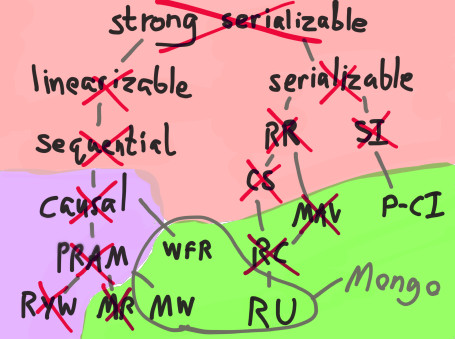 strong serializable
linearizable serializable
sequential RR SI
causal CS MAV P-CI
PRAM WFR RC
RYW MR MW RU Mongo